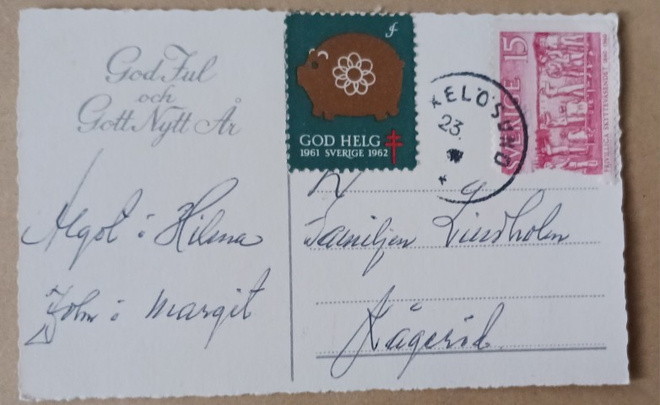 God Jul
och
Gott Nytt År
GOD HELG
1961 SVERIGE 1962
XELÖSUND
23.
SVERIGE 15
FRIVILLIGA SKYTTEVÄSENDET
Algot o Hilma
John o Margit
Familjen Lindholm
Kågeröd